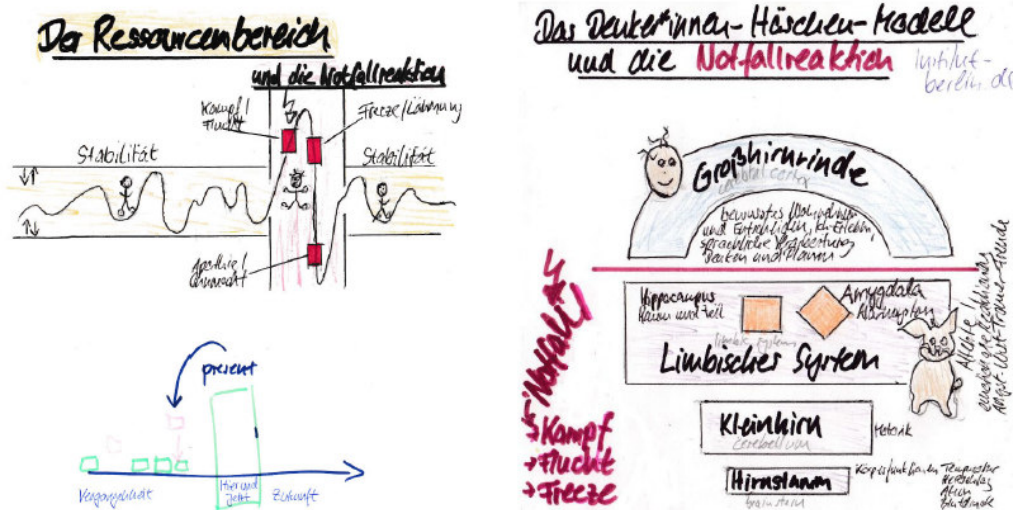 Der Ressourcenbereich
und die Notfallreaktion
Kampf/
Flucht
Freeze/Lähmung
Stabilität
Stabilität
Apathie/
Ohnmacht
present
Vergangenheit
Hier und
Jetzt
Zukunft
Das Denker*innen-Häschen-Modell
und die Notfallreaktion
institut-
berlin.de
Großhirnrinde
cerebral cortex
bewusstes Wahrnehmen
und Entscheiden, Ich-Erleben,
sprachliche Verarbeitung
Denken und Planen
Hippocampus
Raum und Zeit
Amygdala
Alarmanlage
limbic system
Limbischer System
Affekte
emotionale Reaktionen
Angst-Wut-Trauer-Freude
Notfall
→Kampf
→Flucht
→Freeze
Kleinhirn
cerebellum
Motorik
Hirnstamm
brainstem
Körperfunktionen Temperatur
Herzschlag
Atmen
Blutdruck